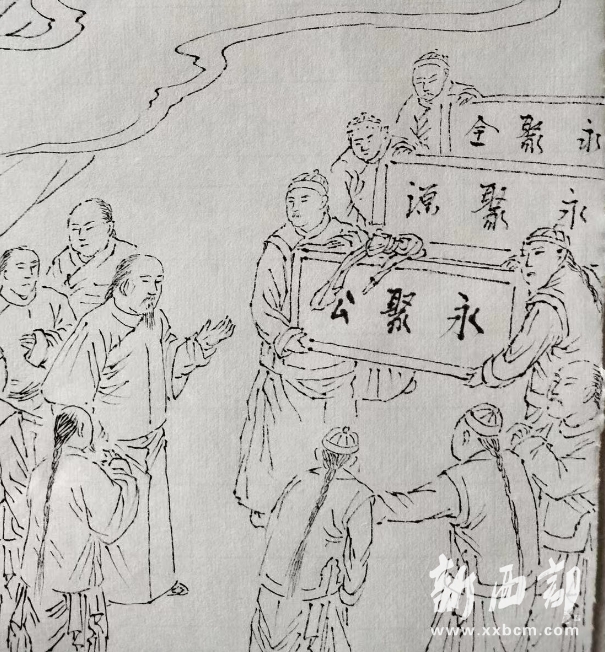 永聚全
永聚源
永聚公
新西部
www.xxbcm.com